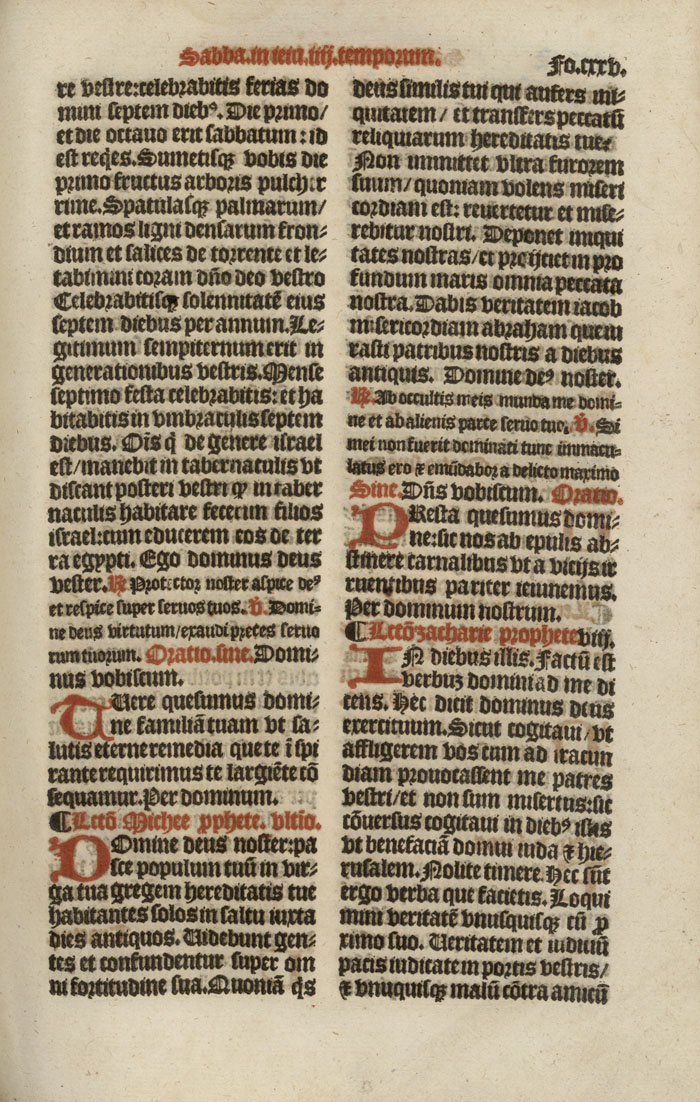 Sabba.in ieiu.iiij.temporum.
Fo.cxxv.
re vestre:celebrabitis ferias do
mini septem diebꝰ. Die primo/
et die octauo erit sabbatum: id
est reqͥes. Sumetisqꝫ vobis die
primo fructus arboris pulcher
rime. Spatulasqꝫ palmarum/
et ramos ligni densarum fron⸗
dium et salices de torrente et le⸗
tabimini coram dño deo vestro
Celebrabitisqꝫ solennitatē eius
septem diebus per annum. Le⸗
gitimum sempiternum erit in
generationibus vestris. Mense
septimo festa celebrabitis: et ha
bitabitis in vmbraculis septem
diebus. Oīs q̄ de genere israel
est/manebit in tabernaculis vt
discant posteri vestri ꝙ in taber
naculis habitare fecerim filios
israel:cum educerem eos de ter
ra egypti. Ego dominus deus
vester. ℟ Protector noster aspice deꝰ
et respice super seruos tuos. ℣. Domi⸗
ne deus virtutum/exaudi preces seruo
rum tuorum. Oratio.sine. Domi⸗
nus vobiscum.
Tuere quesumus domi⸗
ne familiā tuam vt sa⸗
lutis eterne remedia que te ī spi
rante requirimus te largiēte cō
sequamur. Per dominum.
¶ Lectō Michee ꝓphete. vltio.
Domine deus noster:pa
sce populum tuū in vir⸗
ga tua gregem hereditatis tue
habitantes solos in saltu iuxta
dies antiquos. Uidebunt gen⸗
tes et confundentur super om
ni fortitudine sua. Quoniā q̇s
deus similis tui qui aufers ini⸗
quitatem/ et transfers peccatū
reliquiarum hereditatis tue?
Non immittet vltra furorem
suum/quoniam volens miseri
cordiam est: reuertetur et mise⸗
rebitur nostri. Deponet iniqui
tates nostras/et proijciet in pro
fundum maris omnia peccata
nostra. Dabis veritatem iacob
misericordiam abraham que iu
rasti patribus nostris a diebus
antiquis. Domine deꝰ noster.
℟ Ab occultis meis munda me domi⸗
ne et ab alienis parce seruo tuo. ℣. Si
mei non fuerit dominati tunc immacu⸗
latus ero ⁊ emūdabor a delicto maximo
Sine. Dn̄s vobiscum. Oratio.
PResta quesumus domi⸗
ne:sic nos ab epulis ab⸗
stinere carnalibus vt a vicijs ir
ruentibus pariter ieiunemus.
Per dominum nostrum.
¶ Lectō zacharie prophete viij.
IN diebus illis. Factū est
verbuꝫ domini ad me di
cens. Hec dicit dominus deus
exercituum. Sicut cogitaui/vt
affligerem vos cum ad iracun
diam prouocassent me patres
vestri/et non sum misertus:sic
cōuersus cogitaui in diebꝰ istis
vt benefaciā domui iuda ⁊ hie⸗
rusalem. Nolite timere. Hec sūt
ergo verba que facietis. Loqui
mini veritatē vnusquisqꝫ cū ꝓ
ximo suo. Ueritatem et iudiciū
pacis iudicate in portis vestris/
⁊ vnuquisqꝫ malū cōtra amicū